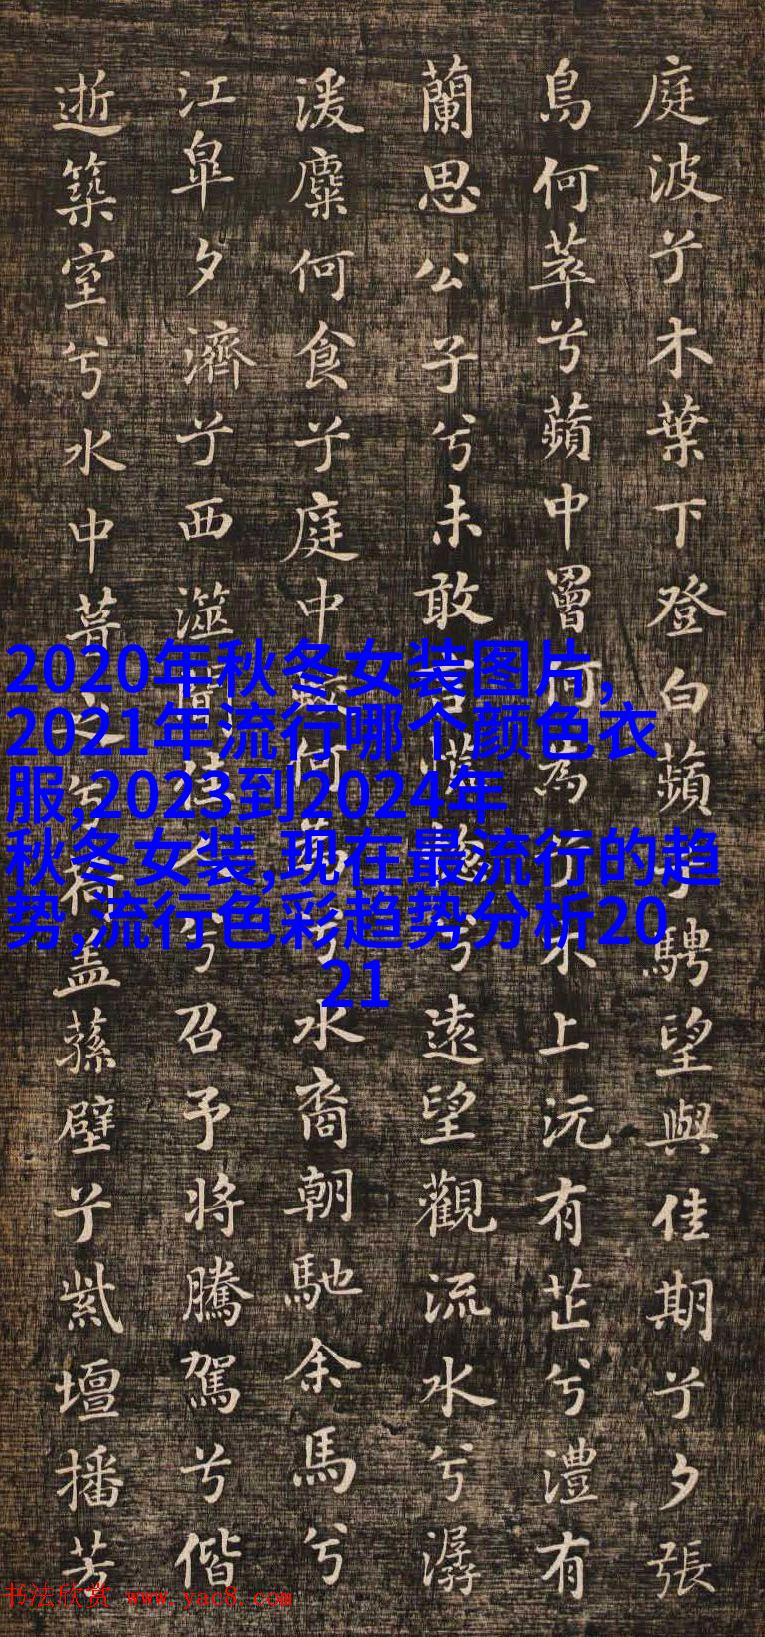 庭波兮木葉下登白蘋兮騁望與佳期兮夕張
鳥何萃兮蘋中罾何為兮木上沅有芷兮澧有
蘭思公子兮未敢言慌惚兮遠望觀流水兮潺
湲麋何食兮庭中蛟何為兮水裔朝馳余馬兮
江皋夕濟兮西澨聞佳人兮召予將騰駕兮偕
逝築室兮水中葺之兮荷蓋蓀壁兮紫壇播芳
2020年秋冬女装图片,
2021年流行哪个颜色衣
服,2023到2024年
秋冬女装,现在最流行的趋
势,流行色彩趋势分析20
21
书法欣赏 www.yac8.com